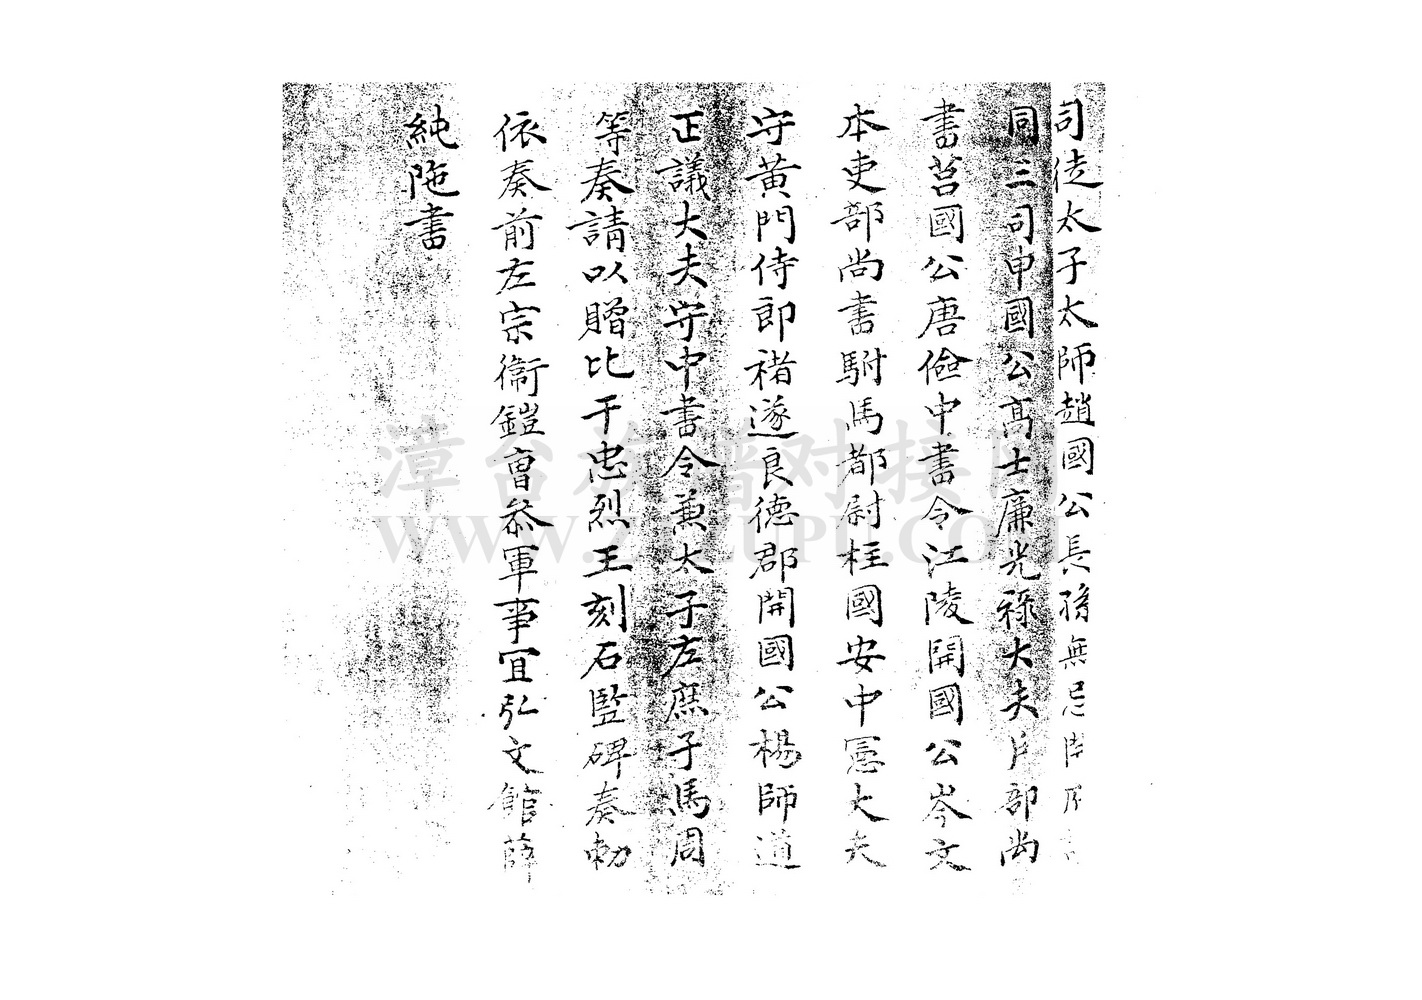 司徒太子太師趙國公長孫無忌開府
同三司申國公高士廉光祿大夫戶部尚
書莒國公唐儉中書令江陵開國公岑文
本吏部尚書駙馬都尉柱國安中憲大夫
守黃門侍郎褚遂良德郡開國公楊師道
正議大夫守中書令兼太子左庶子馬周
等奏請以贈比干忠烈王刻石監碑奏勅
依奏前左宗衞鎧曹叅軍事宜弘文館薛
純陁書
漳台族谱对接网